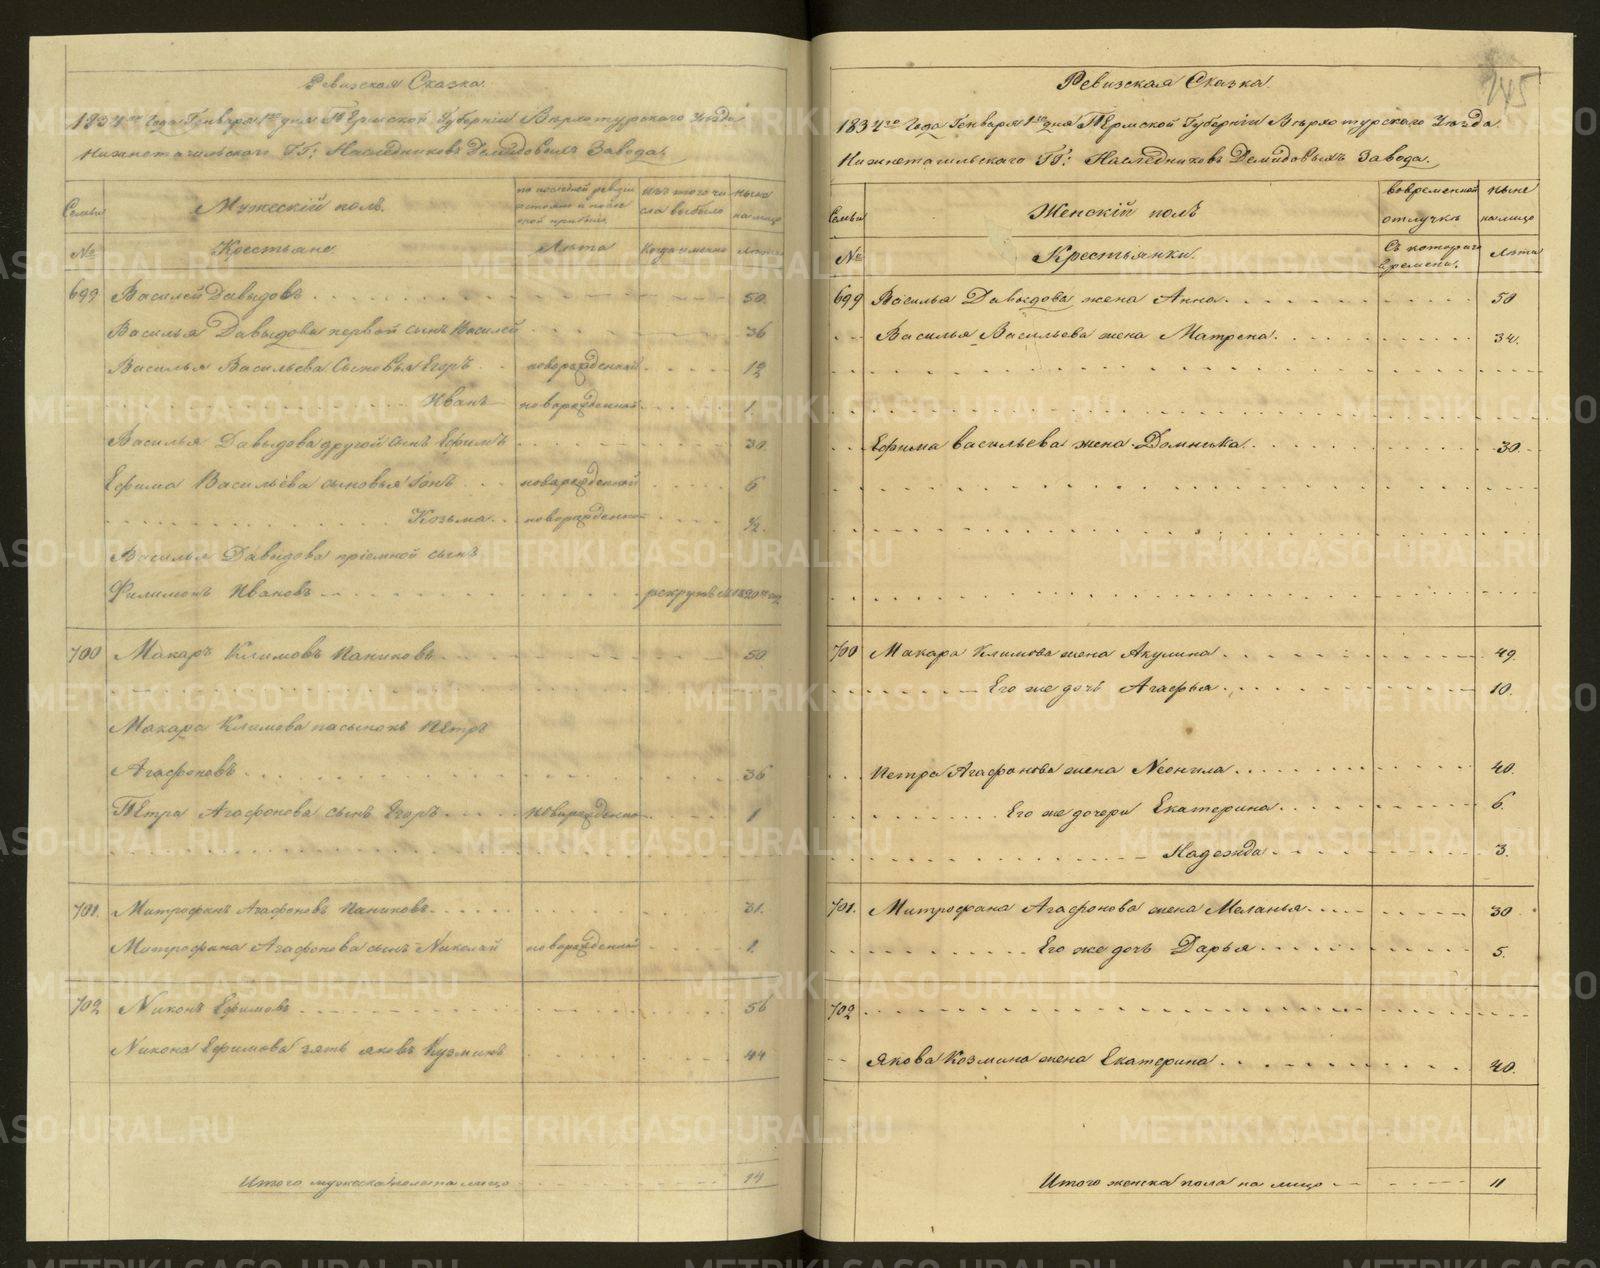 Ревизская Сказка.
1834го Года Генваря 1го дня Пермской Губернiи Верхотурского Уезда
Нижнетагильскаго ГГ: Наследниковъ Демидовыхъ Завода.
Семьи
Мужескiй полъ.
по последней ревизiи
состояло и после
оной прибыло.
изъ того чи
сла выбыло
ныне
на лицо
№
Крестьяне
Лета
Когда именно
Лета
699 Василей Давыдовъ 50
Василья Давыдова первой сынъ Василей 36
Василья Васильева сыновья Егоръ новорожденной 12
Иванъ новорожденной 1.
Василья Давыдова другой сынъ Ефимъ 30
Ефима Васильева сыновья новорожденной 6
Козьма новорожденно ½.
Василья Давыдова прiемной сынъ
Филимонъ Ивановъ рекрутъ
700 Макаръ Климовъ Паниковъ 50
Макара Климова пасынокъ Петръ
Агафоновъ 36
Петра Агафонова сынъ Егоръ новорожденно 1
701. Митрофанъ Агафоновъ Паниковъ 31.
Митрофана Агафонова сынъ Николай новорожденной 1.
702 Никонъ Ефимовъ 56
Никона Ефимова зять яковъ Кузминъ 44
Итого мужеска пола на лицо 14
245
Ревизская Сказка.
1834го Года Генваря 1го дня Пермской Губернiи Верхотурскаго Уезда
Нижнетагильскаго ГГ: Наследниковъ Демидовыхъ Завода.
Семьи
Женскiй полъ
вовременной
отлучке
ныне
на лицо
№
Крестьянки.
Съ котораго
времени.
Лета
699 Василья Давыдова жена Анна 50
Василья Васильева жена Матрена 34.
Ефима Васильева жена Домника 30
700 Макара Климова жена Акулина 49.
Его же дочь Агафья 10.
Петра Агафонова жена Неонила 40.
Его же дочери Екатерина 6.
Надежда 3.
701. Митрофана Агафонова жена Меланья 30
Его же дочь Дарья 5.
702
Якова Козмина жена Екатерина 40.
Итого женска пола на лицо 11
METRIKI.GASO-URAL.RU